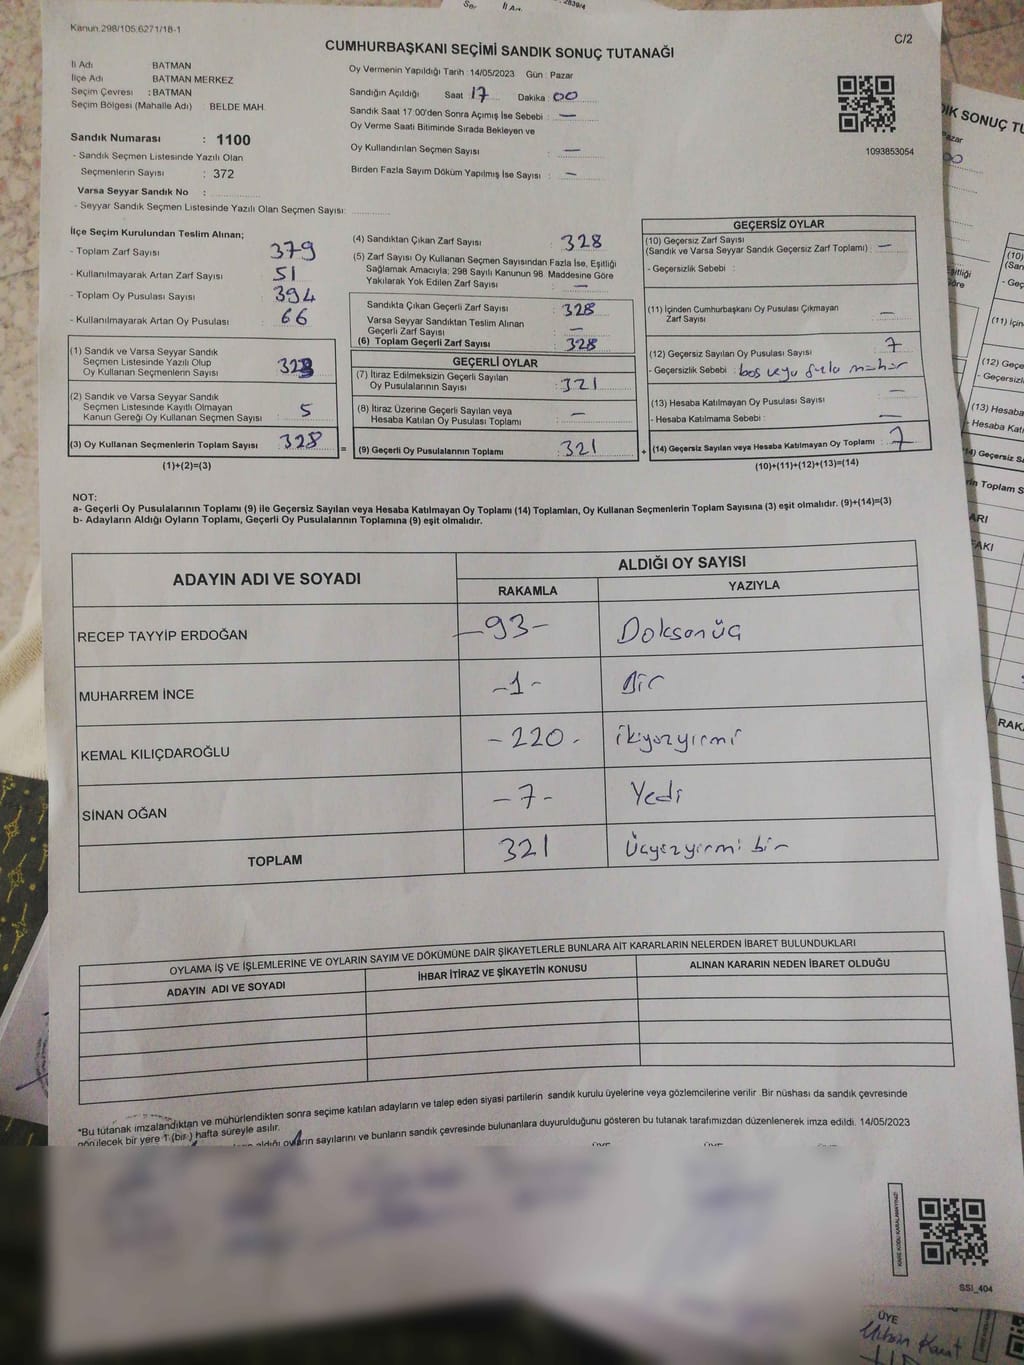 Kanun.298/105.6271/18-1
C/2
CUMHURBAŞKANI SEÇİMİ SANDIK SONUÇ TUTANAĞI
İl Adı BATMAN
İlçe Adı BATMAN MERKEZ
Seçim Çevresi : BATMAN
Seçim Bölgesi (Mahalle Adı) : BELDE MAH.
Sandık Numarası : 1100
- Sandık Seçmen Listesinde Yazılı Olan
Seçmenlerin Sayısı : 372
Varsa Seyyar Sandık No :
- Seyyar Sandık Seçmen Listesinde Yazılı Olan Seçmen Sayısı:
Oy Vermenin Yapıldığı Tarih : 14/05/2023 Gün : Pazar
Sandığın Açıldığı Saat 17 Dakika 00
Sandık Saat 17.00'den Sonra Açımış İse Sebebi : —
Oy Verme Saati Bitiminde Sırada Bekleyen ve
Oy Kullandırılan Seçmen Sayısı : —
Birden Fazla Sayım Döküm Yapılmış İse Sayısı : —
1093853054
İlçe Seçim Kurulundan Teslim Alınan;
- Toplam Zarf Sayısı : 379
- Kullanılmayarak Artan Zarf Sayısı : 51
- Toplam Oy Pusulası Sayısı : 394
- Kullanılmayarak Artan Oy Pusulası : 66
(1) Sandık ve Varsa Seyyar Sandık
Seçmen Listesinde Yazılı Olup
Oy Kullanan Seçmenlerin Sayısı : 323
(2) Sandık ve Varsa Seyyar Sandık
Seçmen Listesinde Kayıtlı Olmayan
Kanun Gereği Oy Kullanan Seçmen Sayısı : 5
(3) Oy Kullanan Seçmenlerin Toplam Sayısı : 328 =
(1)+(2)=(3)
(4) Sandıktan Çıkan Zarf Sayısı : 328
(5) Zarf Sayısı Oy Kullanan Seçmen Sayısından Fazla İse, Eşitliği
Sağlamak Amacıyla; 298 Sayılı Kanunun 98. Maddesine Göre
Yakılarak Yok Edilen Zarf Sayısı : —
Sandıkta Çıkan Geçerli Zarf Sayısı : 328
Varsa Seyyar Sandıktan Teslim Alınan
Geçerli Zarf Sayısı : —
(6) Toplam Geçerli Zarf Sayısı : 328
GEÇERLİ OYLAR
(7) İtiraz Edilmeksizin Geçerli Sayılan
Oy Pusulalarının Sayısı : 321
(8) İtiraz Üzerine Geçerli Sayılan veya
Hesaba Katılan Oy Pusulası Toplamı : —
(9) Geçerli Oy Pusulalarının Toplamı : 321 +
GEÇERSİZ OYLAR
(10) Geçersiz Zarf Sayısı
(Sandık ve Varsa Seyyar Sandık Geçersiz Zarf Toplamı) : —
- Geçersizlik Sebebi :
(11) İçinden Cumhurbaşkanı Oy Pusulası Çıkmayan
Zarf Sayısı : —
(12) Geçersiz Sayılan Oy Pusulası Sayısı : 7
- Geçersizlik Sebebi : boş veya fazla mühür
(13) Hesaba Katılmayan Oy Pusulası Sayısı : —
- Hesaba Katılmama Sebebi : —
(14) Geçersiz Sayılan veya Hesaba Katılmayan Oy Toplamı : 7
(10)+(11)+(12)+(13)=(14)
NOT:
a- Geçerli Oy Pusulalarının Toplamı (9) ile Geçersiz Sayılan veya Hesaba Katılmayan Oy Toplamı (14) Toplamları, Oy Kullanan Seçmenlerin Toplam Sayısına (3) eşit olmalıdır. (9)+(14)=(3)
b- Adayların Aldığı Oyların Toplamı, Geçerli Oy Pusulalarının Toplamına (9) eşit olmalıdır.
ADAYIN ADI VE SOYADI ALDIĞI OY SAYISI
RAKAMLA YAZIYLA
RECEP TAYYİP ERDOĞAN -93- Doksanüç
MUHARREM İNCE -1- Bir
KEMAL KILIÇDAROĞLU -220- ikiyüzyirmi
SİNAN OĞAN -7- Yedi
TOPLAM 321 Üçyüzyirmi bir
OYLAMA İŞ VE İŞLEMLERİNE VE OYLARIN SAYIM VE DÖKÜMÜNE DAİR ŞİKAYETLERLE BUNLARA AİT KARARLARIN NELERDEN İBARET BULUNDUKLARI
ADAYIN ADI VE SOYADI İHBAR İTİRAZ VE ŞİKAYETİN KONUSU ALINAN KARARIN NEDEN İBARET OLDUĞU
*Bu tutanak imzalandıktan ve mühürlendikten sonra seçime katılan adayların ve talep eden siyasi partilerin sandık kurulu üyelerine veya gözlemcilerine verilir. Bir nüshası da sandık çevresinde
görülecek bir yere 1 (bir) hafta süreyle asılır.
aldığı oyların sayılarını ve bunların sandık çevresinde bulunanlara duyurulduğunu gösteren bu tutanak tarafımızdan düzenlenerek imza edildi. 14/05/2023
KARE KODU KARALAMAYINIZ!
SSI_404
ÜYE